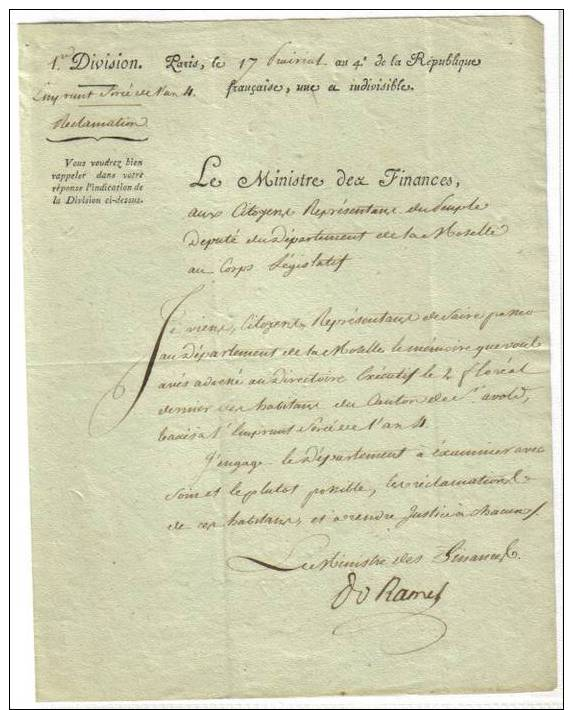 1.re Division.
Emprunt Forcé de l'an 4.
Réclamation
Vous voudrez bien
rappeler dans votre
réponse l'indication de
la Division ci-dessus.
Paris, le 17 Prairial au 4e de la République
française, une et indivisible.
Le Ministre des Finances,
aux Citoyens Représentans du Peuple
Deputé du Département de la Moselle
au Corps Législatif
Je viens, Citoyens Représentans de faire passer
au Département de la Moselle le mémoire que vous
avés adressé au Directoire Exécutif le 2 floréal
dernier des habitans du Canton de St. avold,
taxés à l'Emprunt Forcé de l'an 4
J'engage le Département à examiner avec
soin et le plutot possible, les réclamations
de ces habitans, et à rendre Justice à chacun
Le Ministre des Finances.
Ramel